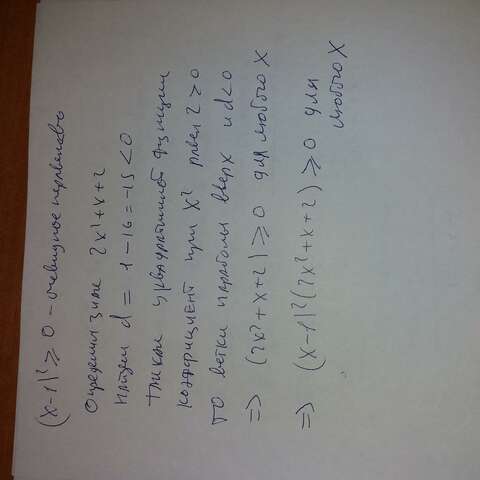 (x-1)² ⩾ 0 - очевидное неравенство
Определим знак 2x²+x+2
Найдем d = 1-16 = -15 < 0
так как у квадратичной функции
коэффициент при x² равен 2 ⩾ 0
то ветки параболы вверх и d<0
=> (2x²+x+2) ⩾ 0 для любого X
=> (x-1)²(2x²+x+2) ⩾ 0 для
любого X